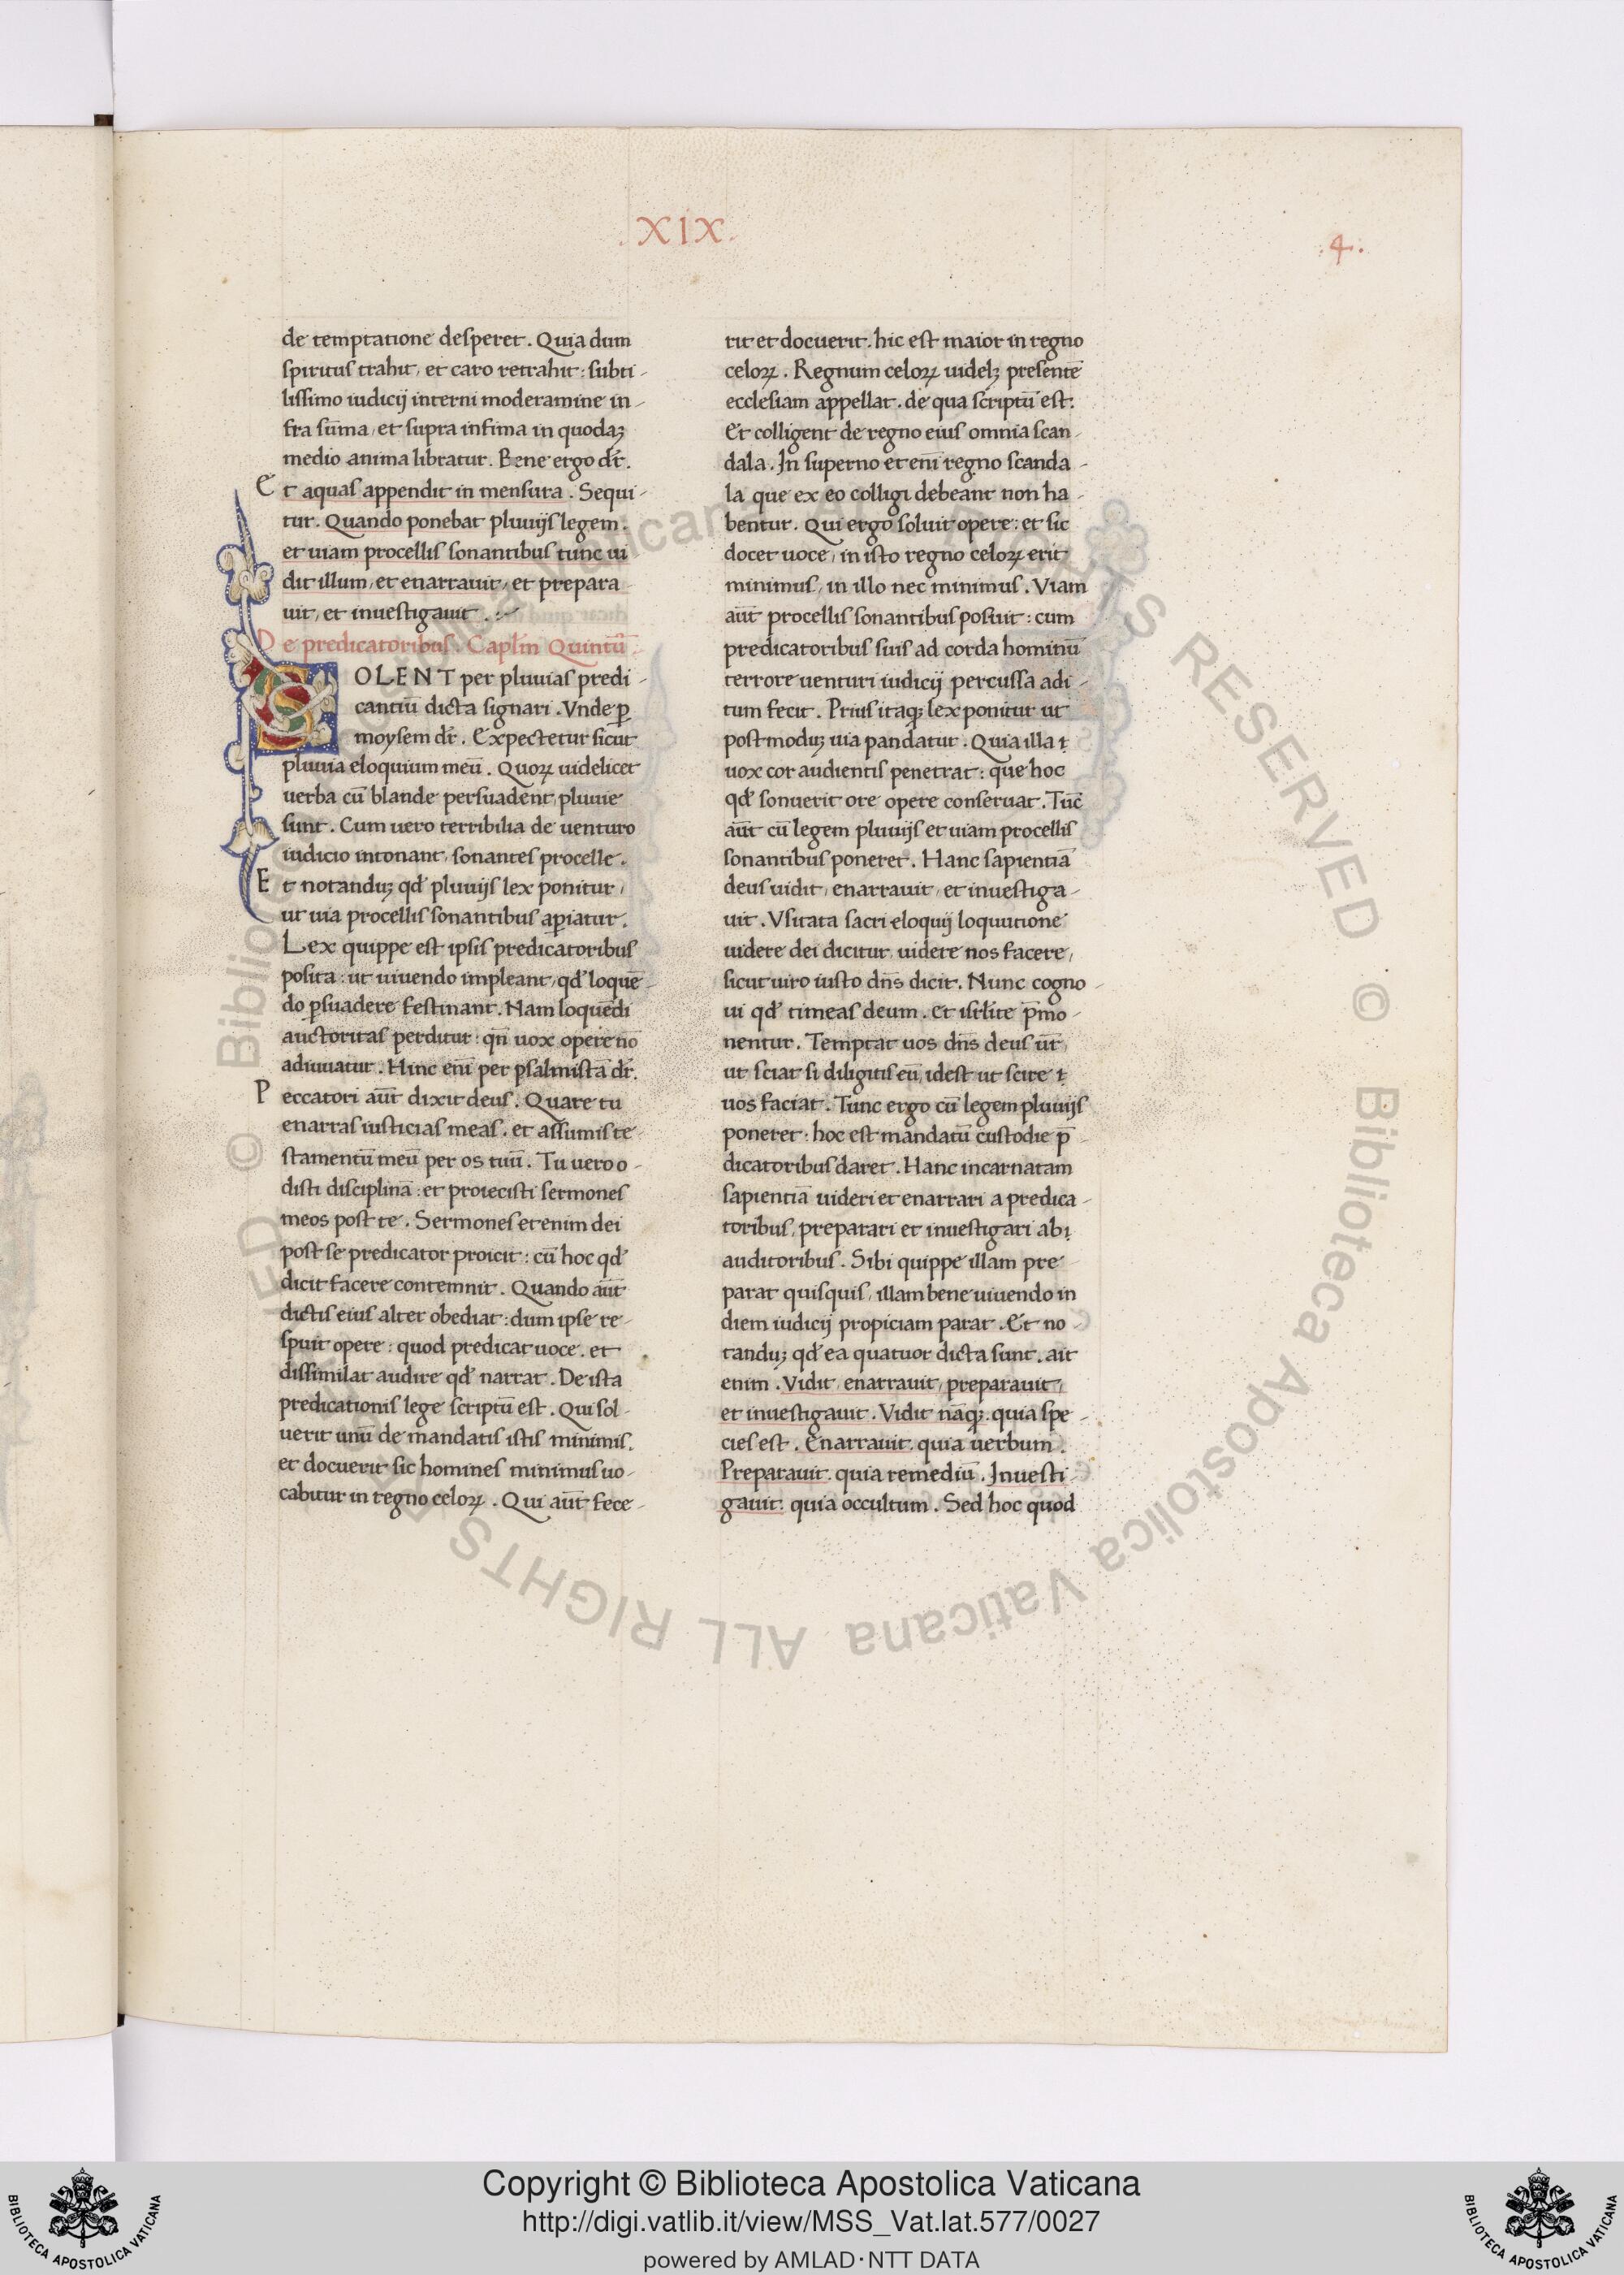 .XIX.
.4.
de temptatione desperet. Quia dum
spiritus trahit, et caro retrahit: subti-
lissimo iudicij interni moderamine in-
fra sūma, et supra infima in quodaʒ
medio anima libratur. Bene ergo dr̄.
Et aquas appendit in mensura. Sequi-
tur. Quando ponebat pluuijs legem.
et uiam procellis sonantibus tunc ui
dit illum, et enarrauit, et prepara-
uit, et inuestigauit.
De predicatoribus. Capĺm Quintū.
SOLENT per pluuias predi-
cantiū dicta signari. Vnde ꝑ
moysem dr̄. Expectetur sicut
pluuia eloquium meū. Quoꝝ uidelicet
uerba cū blande persuadent, pluuie
sunt. Cum uero terribilia de uenturo
iudicio intonant, sonantes procelle.
Et notanduʒ qđ pluuijs lex ponitur,
ut uia procellis sonantibus aꝑiatur.
Lex quippe est ipsis predicatoribus
posita: ut uiuendo impleant, qđ loquē-
do ꝑsuadere festinant. Nam loquēdi
auctoritas perditur: qn̄ uox opere nō
adiuuatur. Hinc eni̅ per psalmistā dr̄.
Peccatori aūt dixit deus. Quare tu
enarras iusticias meas. et assumis te-
stamentū meū per os tuū. Tu uero o-
disti disciplinā: et proiecisti sermones
meos post te. Sermones etenim dei
post se predicator proicit: cū hoc qđ
dicit facere contemnit. Quando aūt
dictis eius alter obediat: dum ipse re-
spuit opere: quod predicat uoce. et
dissimilat audire qđ narrat. De ista
predicationis lege scriptū est. Qui sol-
uerit unū de mandatis istis minimis.
et docuerit sic homines minimus uo-
cabitur in regno celoꝝ. Qui aūt fece-
rit et docuerit. hic est maior in regno
celoꝝ. Regnum celoꝝ uidelʒ presentē
ecclesiam appellat. de qua scriptū est:
Et colligent de regno eius omnia scan-
dala. In superno et eni̅ regno scanda-
la que ex eo colligi debeant non ha-
bentur. Qui ergo soluit opere: et sic
docet uoce, in isto regno celoꝝ erit
minimus, in illo nec minimus. Viam
aūt procellis sonantibus posuit: cum
predicatoribus suis ad corda hominū
terrore uenturi iudicij percussa adi-
tum fecit. Prius itaqʒ lex ponitur ut
post moduʒ uia pandatur. Quia illa ɪ
uox cor audientis penetrat: que hoc
qđ sonuerit ore opere conseruat. Tūc
aūt cū legem pluuijs et uiam procellis
sonantibus poneret. Hanc sapientiā
deus uidit, enarrauit, et inuestiga-
uit. Vsitata sacri eloquij loquutione
uidere dei dicitur, uidere nos facere,
sicut uiro iusto dn̄s dicit. Nunc cogno-
ui qđ timeas deum. et isrl̄ite p̄mo-
nentur. Temptat uos dn̄s deus ur̄,
ut sciat si diligitis eū, idest ut scire ɪ
uos faciat. Tunc ergo cū legem pluuijs
poneret: hoc est mandatū custodie p̄-
dicatoribus daret. Hanc incarnatam
sapientiā uideri et enarrari a predica-
toribus, preparari et inuestigari abɪ
auditoribus. Sibi quippe illam pre-
parat quisquis, illam bene uiuendo in
diem iudicij propiciam parat. Et no-
tanduʒ qđ ea quatuor dicta sunt. ait
enim. Vidit, enarrauit, preparauit,
et inuestigauit. Vidit nāqʒ. quia spe-
cies est. Enarrauit. quia uerbum.
Preparauit. quia remediū. Inuesti-
gauit: quia occultum. Sed hoc quod
© Biblioteca Apostolica Vaticana ALL RIGHTS RESERVED
Copyright © Biblioteca Apostolica Vaticana
http://digi.vatlib.it/view/MSS_Vat.lat.577/0027
powered by AMLAD·NTT DATA
BIBLIOTECA APOSTOLICA VATICANA
BIBLIOTECA APOSTOLICA VATICANA